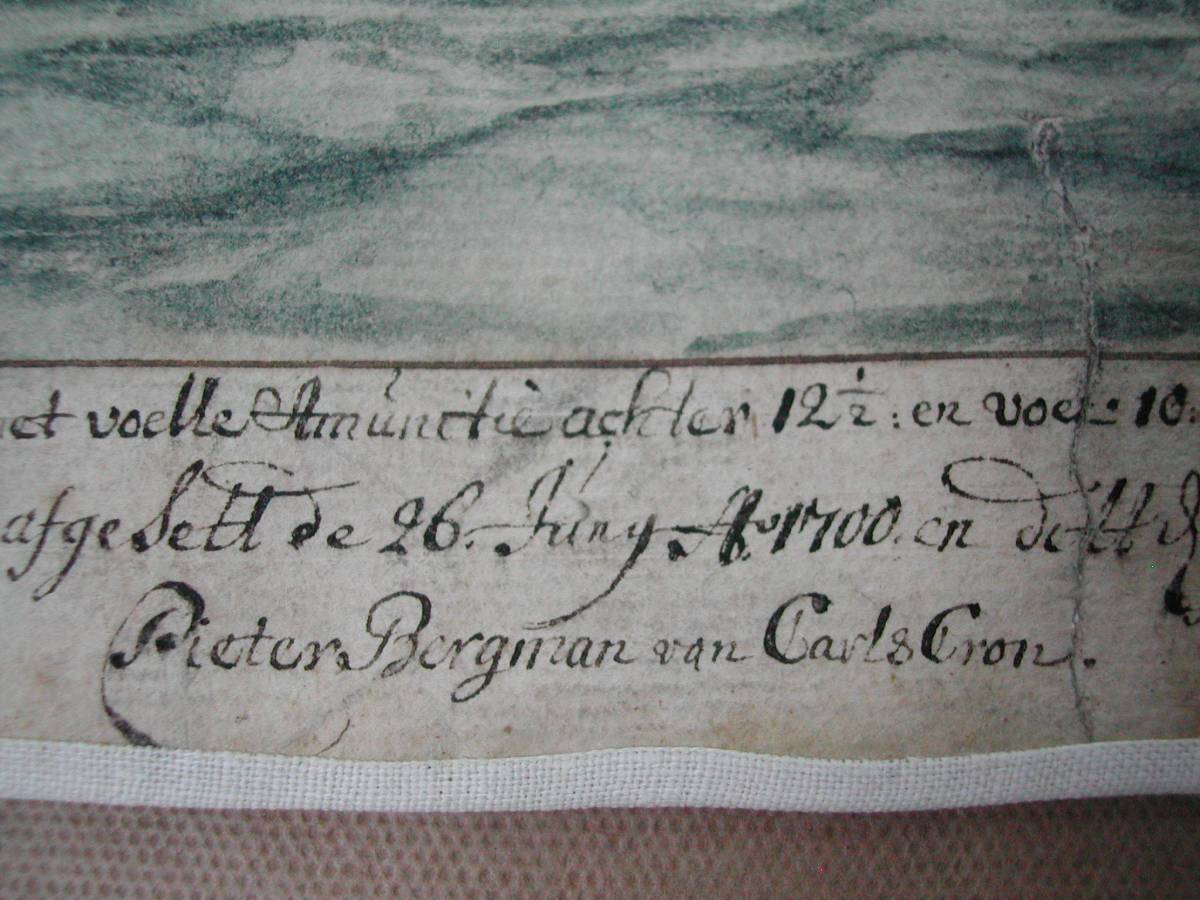 et voelle Amunitie achter 12½: en voer 10:
afgesett de 26. Juny Ao 1700. en dett
Pieter Bergman van CarlsCron.